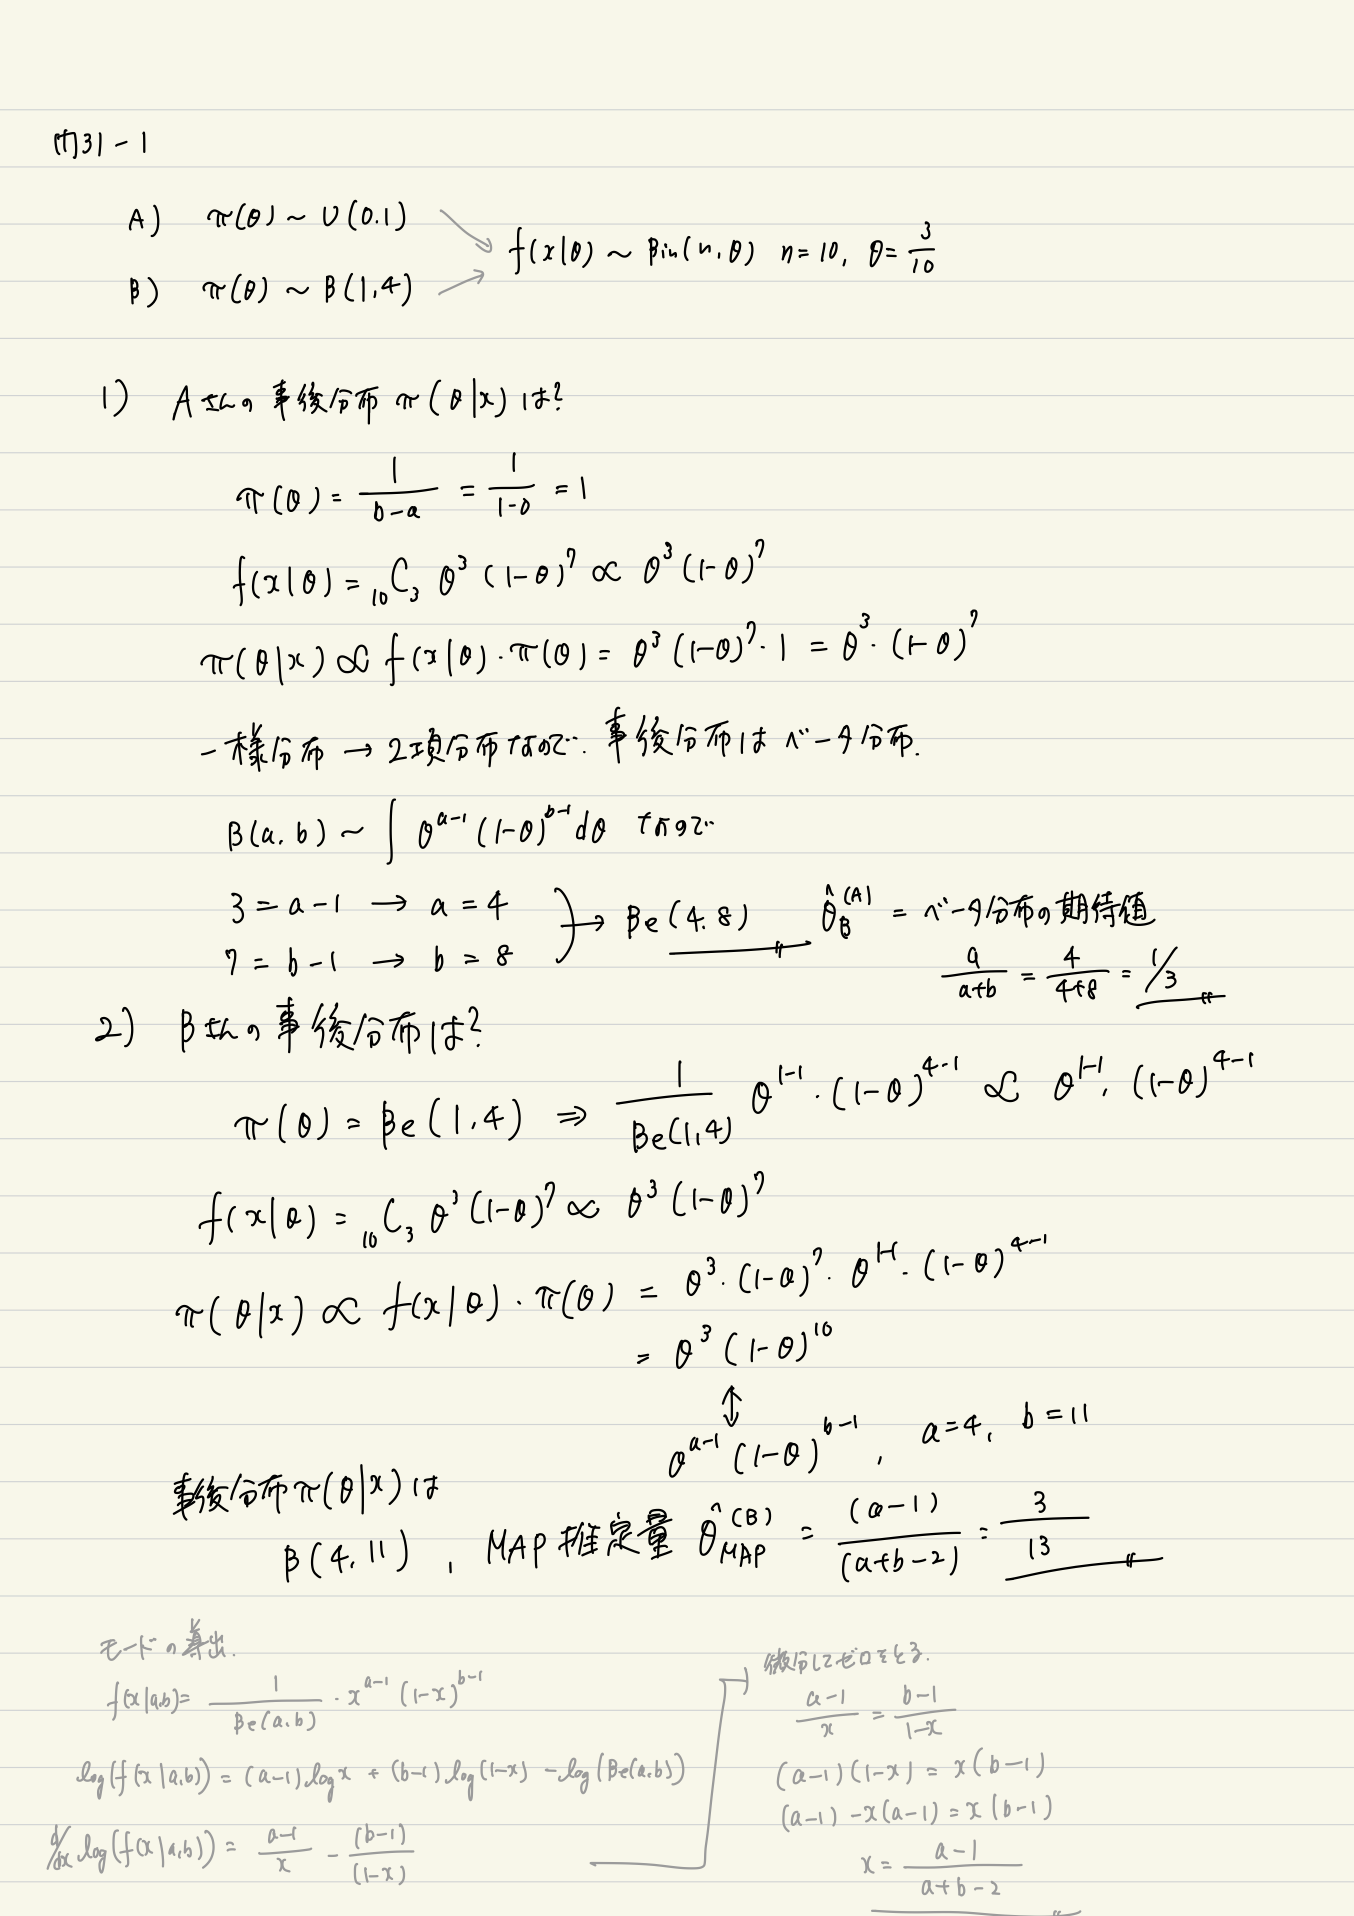 例31-1
A) π(θ) ~ U(0.1)
f(x|θ) ~ Bin(n,θ) n=10, θ=3/10
B) π(θ) ~ B(1,4)
1) Aさんの事後分布 π(θ|x) は?
π(θ) = 1/(b-a) = 1/(1-0) = 1
f(x|θ) = ₁₀C₃ θ³ (1-θ)⁷ ∝ θ³ (1-θ)⁷
π(θ|x) ∝ f(x|θ)・π(θ) = θ³ (1-θ)⁷・1 = θ³・(1-θ)⁷
一様分布 → 2項分布なので. 事後分布は ベータ分布.
B(a,b) ~ ∫ θ^(a-1) (1-θ)^(b-1) dθ なので
3 = a-1 → a = 4
7 = b-1 → b = 8
→ Be(4.8)
θ̂_B^(A) = ベータ分布の期待値
a/(a+b) = 4/(4+8) = 1/3
2) Bさんの事後分布は?
π(θ) = Be(1,4) ⇒ 1/Be(1,4) θ^(1-1)・(1-θ)^(4-1) ∝ θ^(1-1)・(1-θ)^(4-1)
f(x|θ) = ₁₀C₃ θ³ (1-θ)⁷ ∝ θ³ (1-θ)⁷
π(θ|x) ∝ f(x|θ)・π(θ) = θ³・(1-θ)⁷・θ^(1-1)・(1-θ)^(4-1)
= θ³ (1-θ)¹⁰
↕
θ^(a-1) (1-θ)^(b-1), a=4, b=11
事後分布π(θ|x)は
B(4,11), MAP推定量 θ̂_MAP^(B) = (a-1)/(a+b-2) = 3/13
モードの導出.
f(x|a,b) = 1/Be(a,b)・x^(a-1) (1-x)^(b-1)
log(f(x|a,b)) = (a-1)log x + (b-1)log(1-x) - log(Be(a,b))
d/dx log(f(x|a,b)) = (a-1)/x - (b-1)/(1-x)
微分してゼロをとる.
(a-1)/x = (b-1)/(1-x)
(a-1)(1-x) = x(b-1)
(a-1) - x(a-1) = x(b-1)
x = (a-1)/(a+b-2)